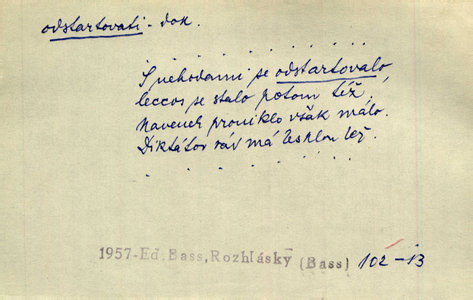 odstartovati - dok.
. . . . . . . .
S nehodami se odstartovalo,
leccos se stalo potom též.
Navenek proniklo však málo.
Diktátor rád má lež.
. . . . . . . .
1957-Ed.Bass,Rozhlásky (Bass) 102-13